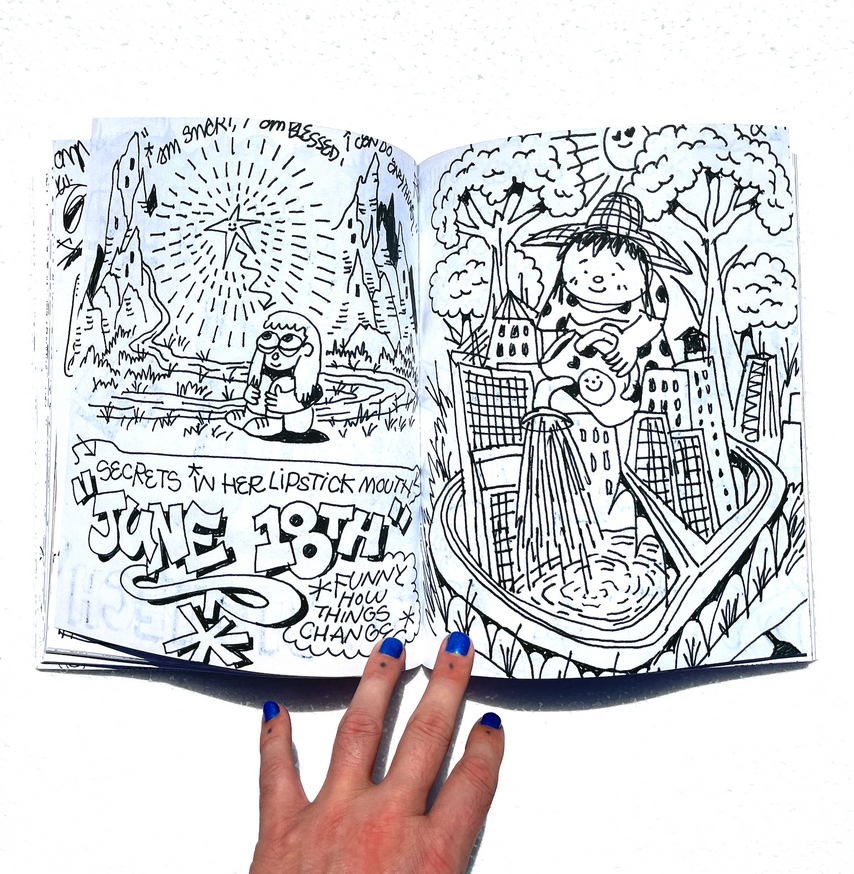 "I AM SMART, I AM BLESSED, I CAN DO
"SECRETS IN HER LIPSTICK MOUTH
"JUNE 18TH"
*FUNNY
HOW
THINGS *
CHANGE